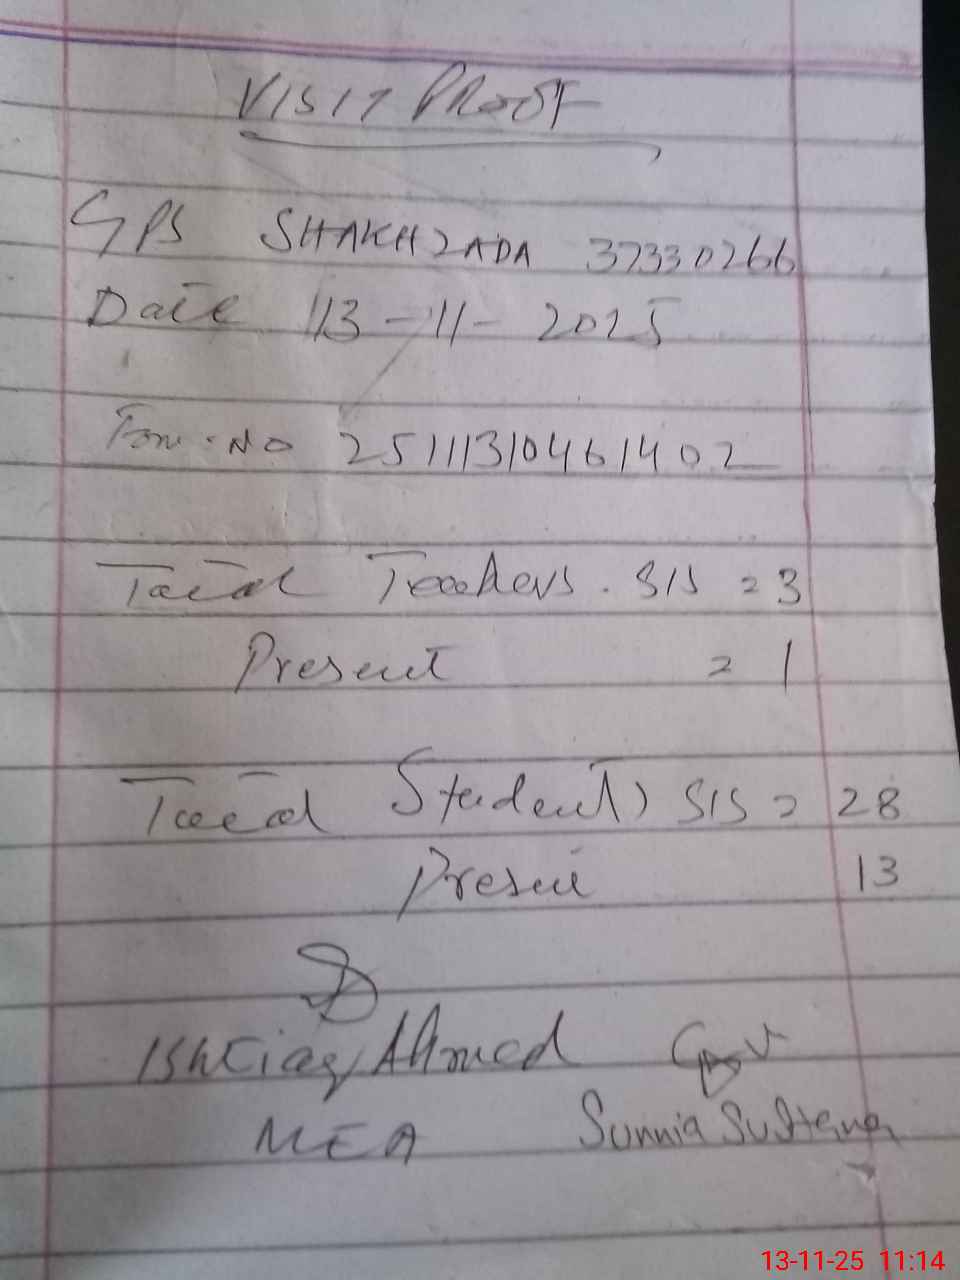 VISIT PROOF
GPS SHAKHZADA 37330266
Date 13-11-2025
Form No 25111310461402
Total Teachers. SIS = 3
Present = 1
Total Students SIS = 28
Present 13
Ishtiaq Ahmed
MEA
Sunnia Sultana
13-11-25 11:14